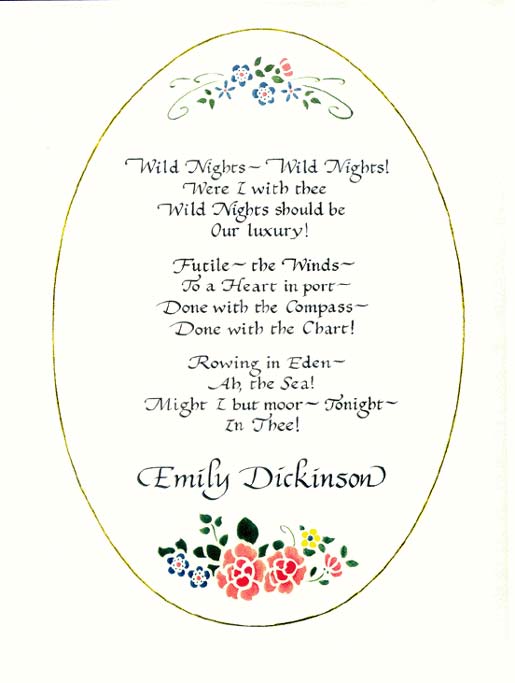 Wild Nights~ Wild Nights!
Were I with thee
Wild Nights should be
Our luxury!
Futile~ the Winds~
To a Heart in port~
Done with the Compass~
Done with the Chart!
Rowing in Eden~
Ah, the Sea!
Might I but moor~ Tonight~
In Thee!
Emily Dickinson